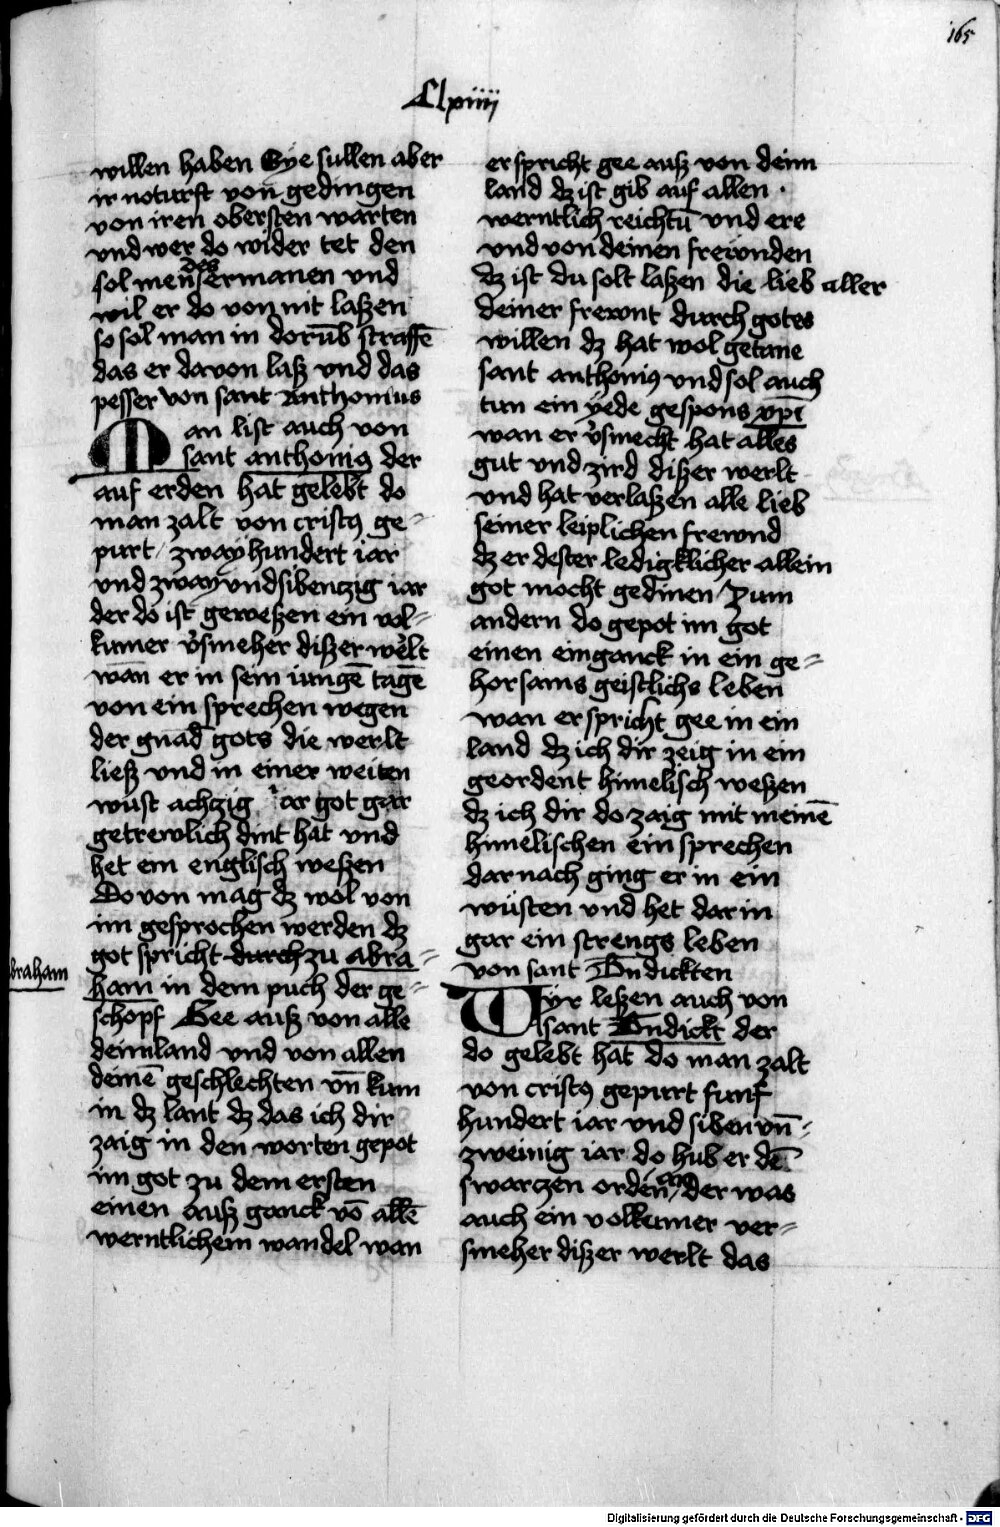 165
Clxiiii
willen haben Sye sullen aber
ir noturft von gedingen
von iren obersten warten
vnd wer do wider tet den
sol men des ermanen vnd
wil er do von nit laßen
so sol man in dorūb straffē
das er davon laß vnd das
pesser von sant Anthonius
Man list auch von
sant anthoniꝰ der
auf erden hat gelebt do
man zalt von cristꝰ ge=
purt / zway hundert iar
vnd zway vnd sibenczig iar
der do ist geweßen ein vol=
kumer v̓smeher dißer welt
wan er in sein iungē tagē
von ein sprechen wegen
der gnad gots die werlt
ließ vnd in einer weiten
wust achzig iar got gar
getrewlich dint hat vnd
het ein englisch weßen
Do von mag dz wol von
im gesprochen werden dz
got spricht durch zu abra=
ham in dem puch der ge=
schopf Gee auß von alle
deim land vnd von allen
deinē geschlechten vn̄ kum
in dz lant dz das ich dir
zaig in den worten gepot
im got zu dem ersten
einen auß ganck vō allē
werntlichem wandel wan
braham
er spricht gee auß von deim
land dz ist gib auf allen ·
werntlich reichtū vnd ere
vnd von deinen frewnden
dz ist du solt laßen die lieb aller
deiner frewnt durch gotes
willen dz hat wol getane
sant anthoniꝰ vnd sol auch
tun ein yede gespons xpi̅
wan er v̓smecht hat alles
gut vnd zird dißer werlt
vnd hat verlaßen alle lieb
seiner leiplichen frewnd
dz er dester ledigklicher allein
got mocht gedinen / Zum
andern do gepot im got
einen einganck in ein ge=
horsams geistlichs leben
wan er spricht gee in ein
land dz ich dir zeig in ein
geordent himelisch weßen
dz ich dir do zaig mit meinē
himelischen ein sprechen
darnach ging er in ein
wüsten vnd het darin
gar ein strengs leben
von sant Bndickten
Wyr leßen auch von
sant Bndickt der
do gelebt hat do man zalt
von cristꝰ gepurt funf
hundert iar vnd siben vn̄=
zweinig iar do hub er dē
swarczen orden an / der was
auch ein volkumer ver=
smeher dißer werlt das
Digitalisierung gefördert durch die Deutsche Forschungsgemeinschaft - DFG